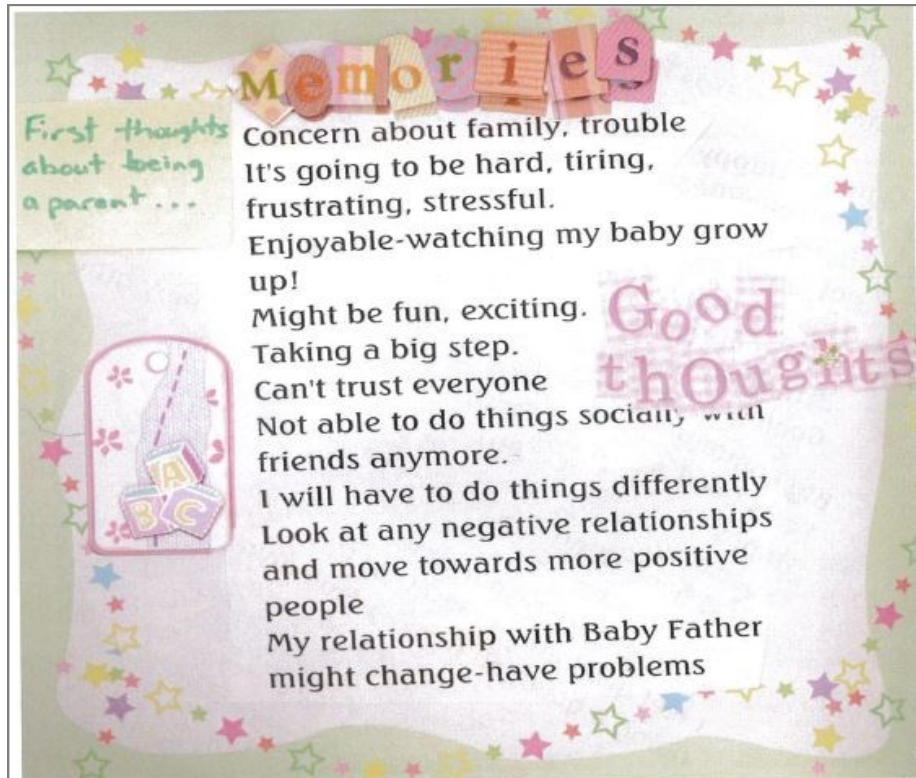 Memories
First thoughts
about being
a parent...
Concern about family, trouble
It's going to be hard, tiring,
frustrating, stressful.
Enjoyable-watching my baby grow
up!
Might be fun, exciting.
Taking a big step.
Can't trust everyone
Not able to do things socially with
friends anymore.
I will have to do things differently
Look at any negative relationships
and move towards more positive
people
My relationship with Baby Father
might change-have problems
Good
thOughts
A
B C